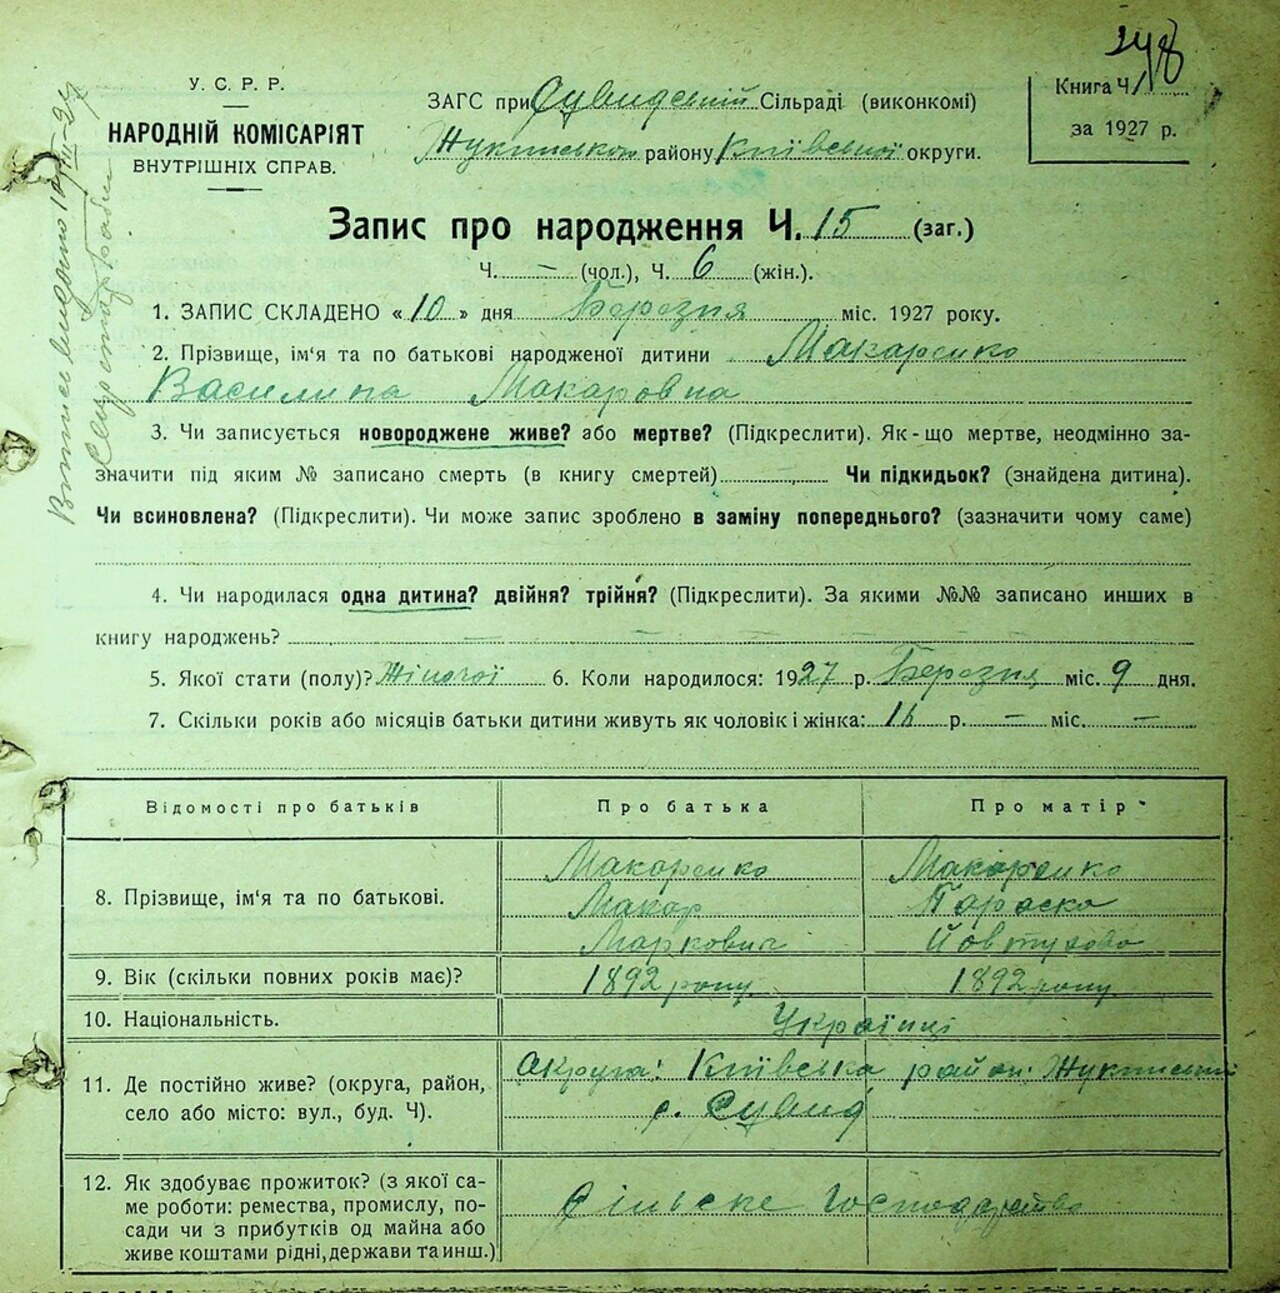 248
У. С. Р. Р.
НАРОДНІЙ КОМІСАРІЯТ
ВНУТРІШНІХ СПРАВ.
ЗАГС при Сувидській Сільраді (виконкомі)
Жукинського району Київської округи.
Книга Ч. 1
за 1927 р.
Запис про народження Ч. 15 (заг.)
Ч. — (чол.), Ч. 6 (жін.).
1. ЗАПИС СКЛАДЕНО « 10 » дня Березня міс. 1927 року.
2. Прізвище, ім'я та по батькові народженої дитини Макаренко
Василина Макаровна
3. Чи записується новороджене живе? або мертве? (Підкреслити). Як-що мертве, неодмінно за-
значити під яким № записано смерть (в книгу смертей) Чи підкидьок? (знайдена дитина).
Чи всиновлена? (Підкреслити). Чи може запис зроблено в заміну попереднього? (зазначити чому саме)
4. Чи народилася одна дитина? двійня? трійня? (Підкреслити). За якими №№ записано инших в
книгу народжень? — — — —
5. Якої стати (полу)? Жіночої 6. Коли народилося: 1927 р. Березня міс. 9 дня.
7. Скільки років або місяців батьки дитини живуть як чоловік і жінка: р. — міс. —
Відомості про батьків Про батька Про матір
8. Прізвище, ім'я та по батькові.
Макаренко Макаренко
Макар Параска
Маркович Йовтухова
9. Вік (скільки повних років має)? 1892 року 1892 року
10. Національність. Українці
11. Де постійно живе? (округа, район,
село або місто: вул., буд. Ч).
Округа: Київська район: Жукинський
с. Сувид
12. Як здобуває прожиток? (з якої са-
ме роботи: ремества, промислу, по-
сади чи з прибутків од майна або
живе коштами рідні, держави та инш.)
Сільске Господарство